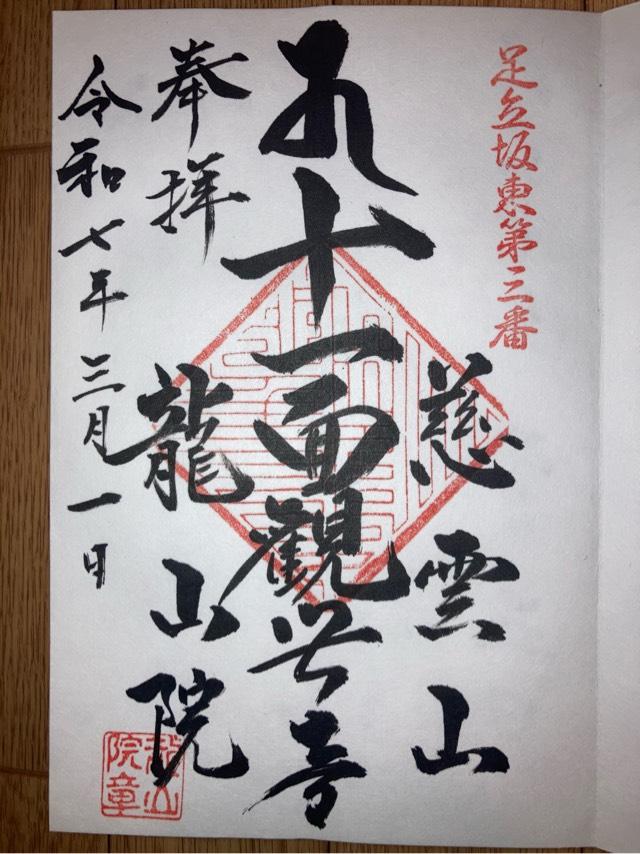 足立坂東第三番
慈雲山
十一面觀世音
奉拝
龍山院
令和七年三月一日
龍山院章